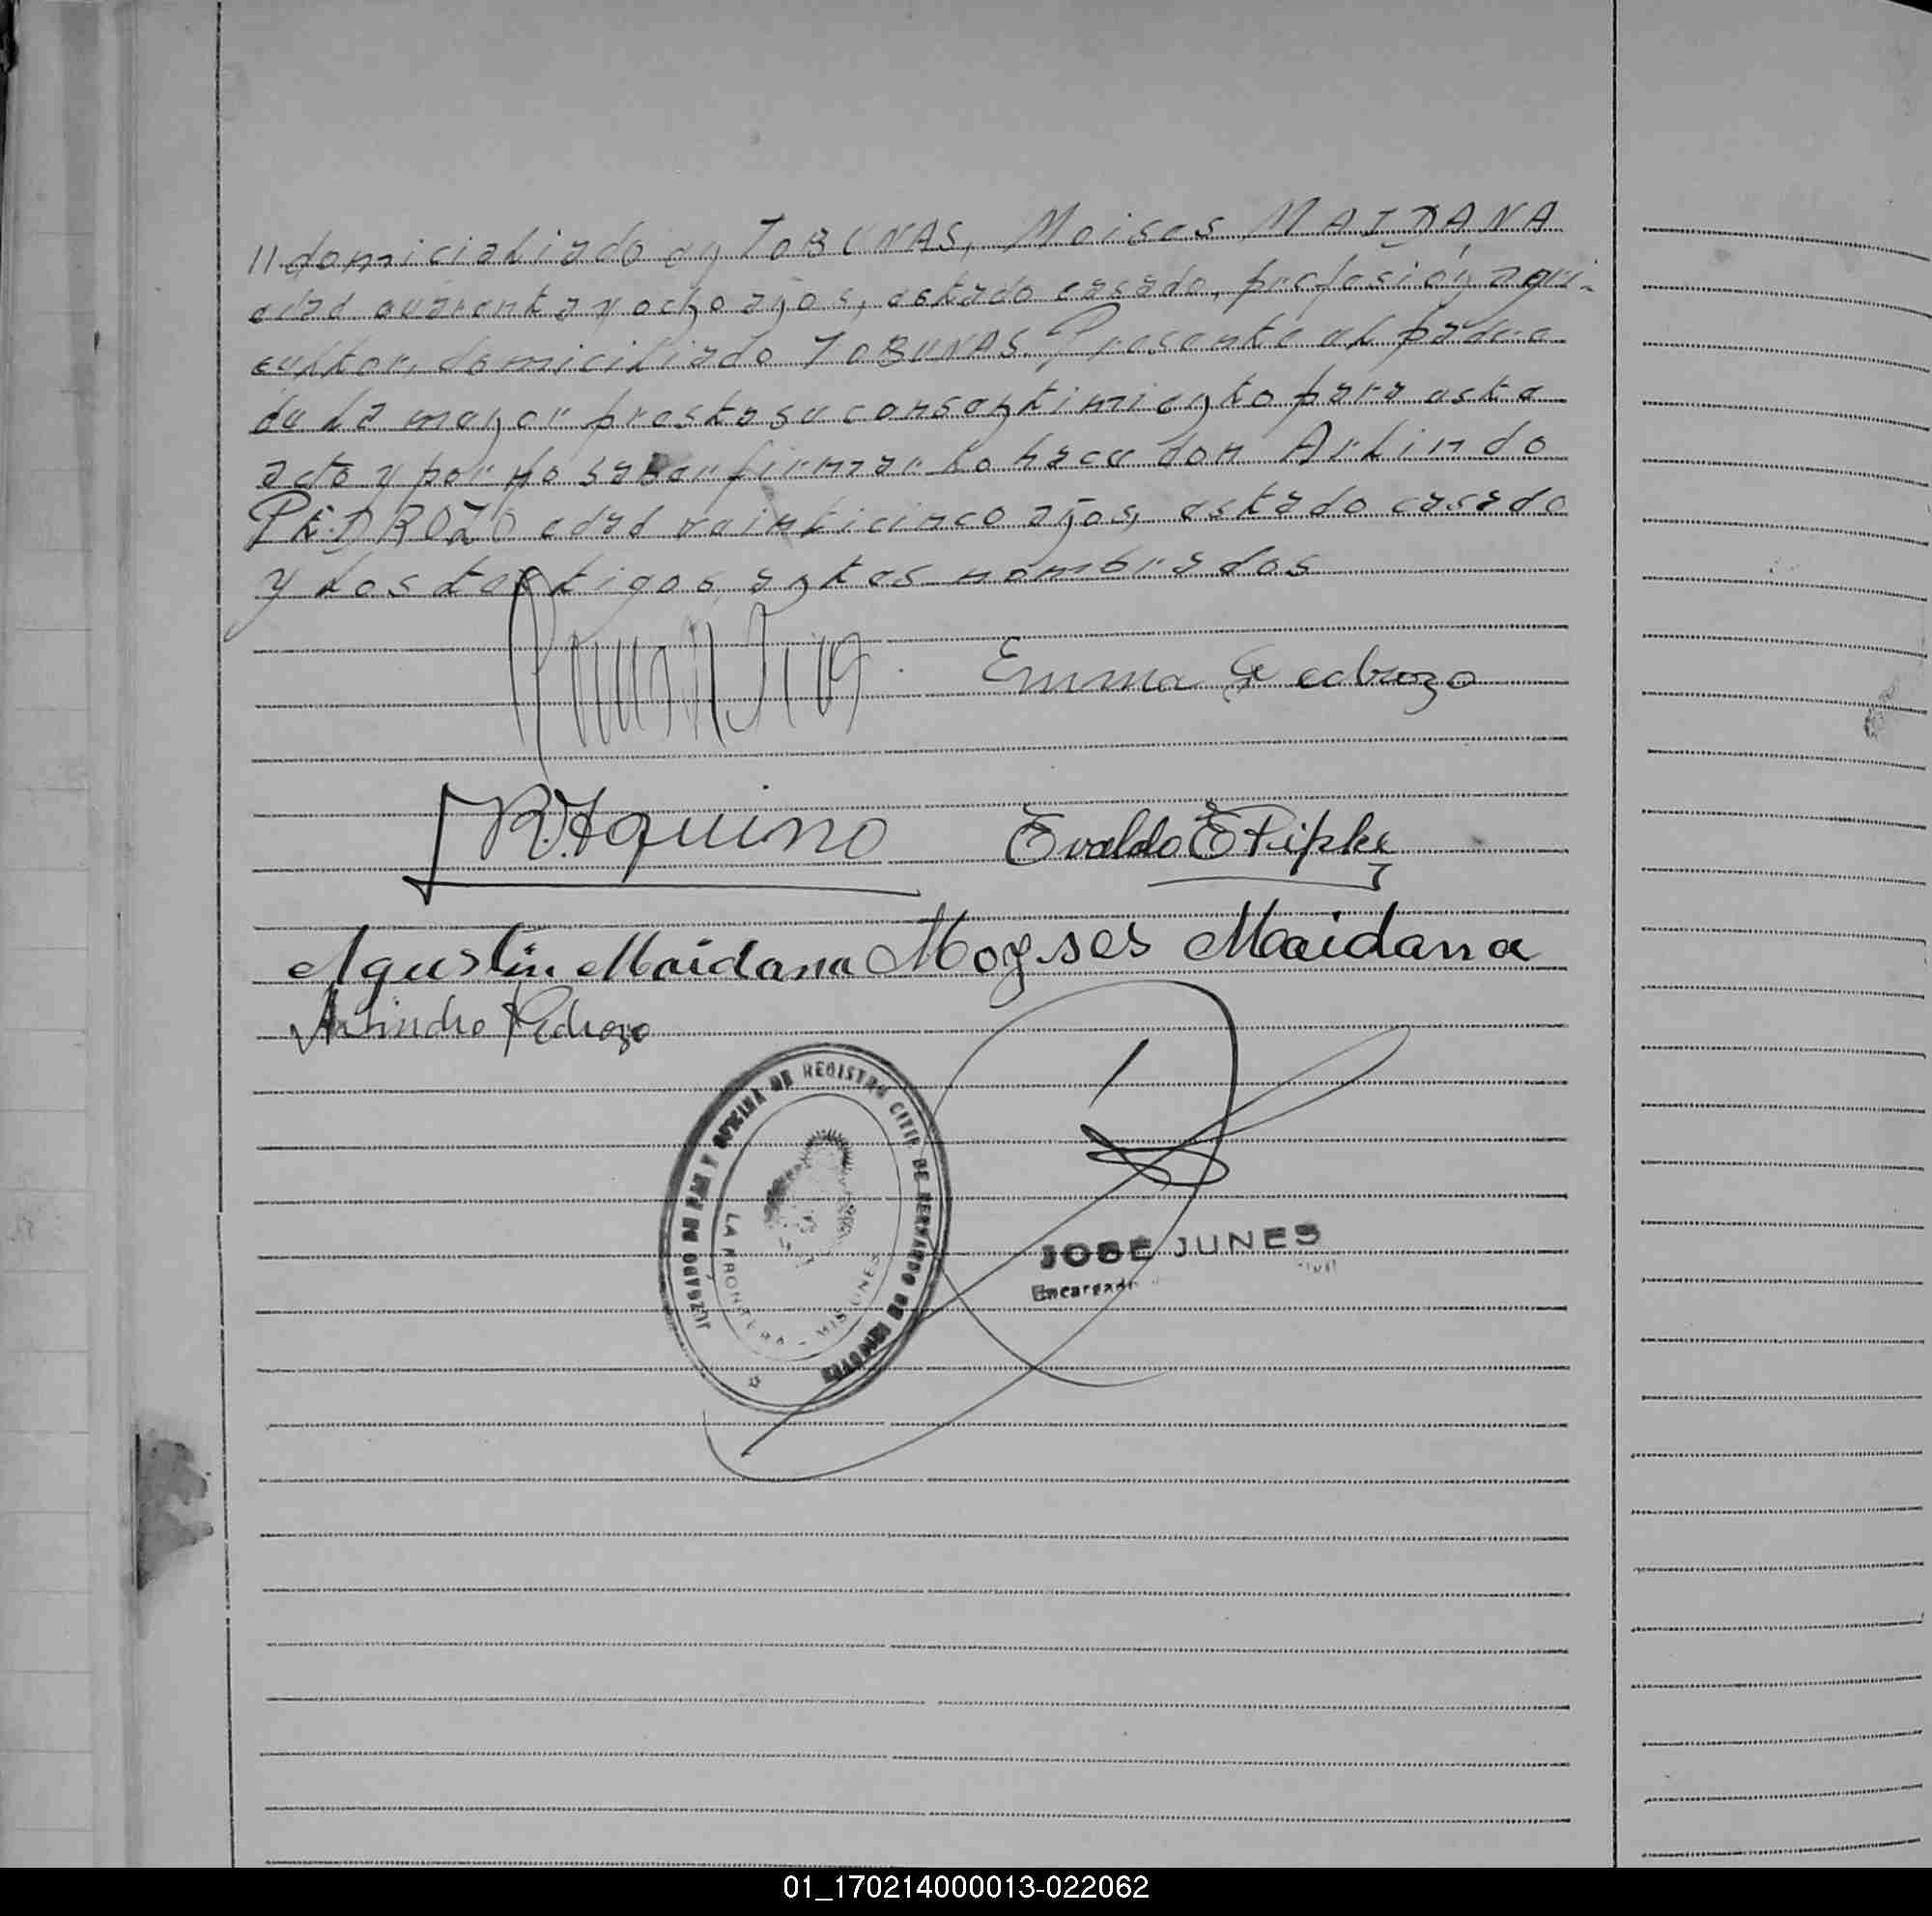 // domicialiado en TOBUNAS, Moises MAIDANA
edad cuarenta y ocho años, estado casado, profesión agri-
cultor, domiciliado TOBUNAS. Presente el padre
de la mayor presta su consentimiento para este
acto y por no saber firmar lo hace don Arlindo
PEDROZO edad veinticinco años, estado casado
y los testigos antes nombrados
Emma Pedrozo
R. Aquino Evaldo E Pipke
Agustin Maidana Moyses Maidana
Arlindro Pedrozo
JUZGADO DE PAZ Y OFICINA DE REGISTRO CIVIL DE BERNARDO DE IRIGOYEN
LA FRONTERA - MISIONES
JOSE JUNES
Encargado
01_170214000013-022062